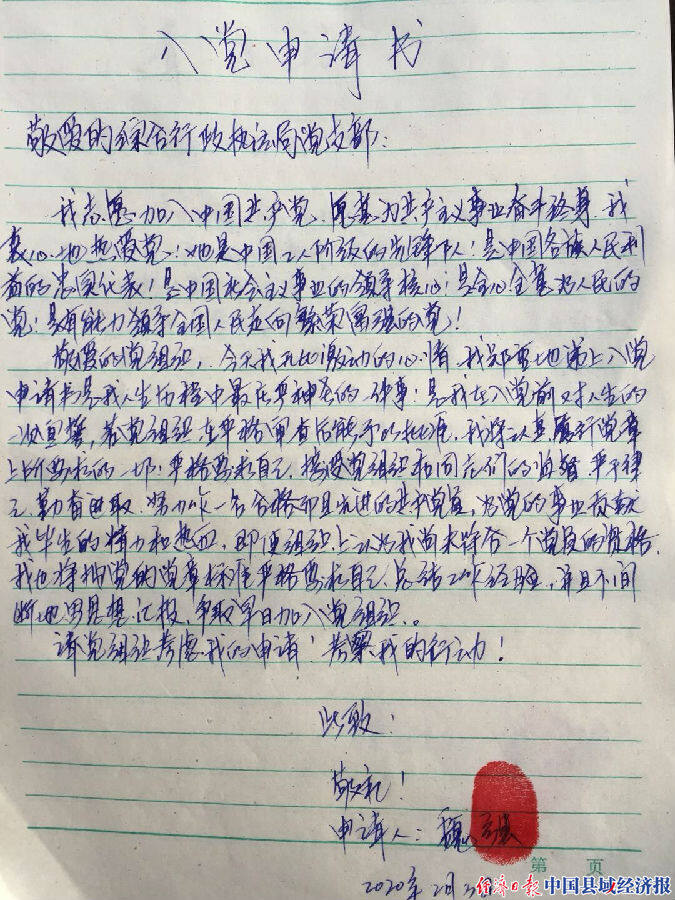 入党申请书
敬爱的综合行政执法局党支部:
我志愿加入中国共产党,愿意为共产主义事业奋斗终身.我
衷心地热爱党!她是中国工人阶级的先锋队!是中国各族人民利
益的忠实代表!是中国社会主义事业的领导核心!是全心全意为人民的
党!是有能力领导全国人民走向繁荣富强的党!
敬爱的党组织,今天我无比激动的心情,我郑重地递上入党
申请书是我人生历程中最庄严神圣的一件事!是我在入党前对人生的
一次宣誓,若党组织在严格审查后能予以批准,我将认真履行党章
上所要求的一切.严格要求自己,接受党组织和同志们的监督,严于律
己.勤奋进取.努力作一名合格而且先进的共产党员,为党的事业贡献
我毕生的精力和热血,即便组织上认为我尚未符合一个党员的资格,
我也将按党的党章标准严格要求自己,总结工作经验,并且不间
断地用思想汇报,争取早日加入党组织。
请党组织考虑我的申请!考察我的行动!
此致!
敬礼!
申请人:魏
第 页
2020年2月3日
经济日报 中国县域经济报